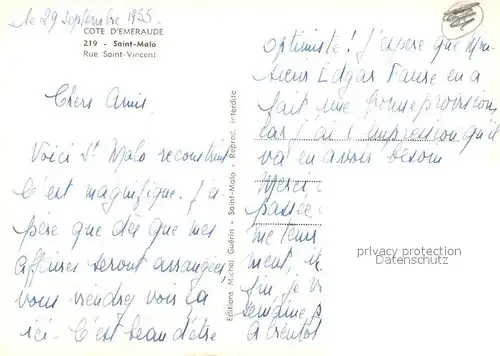 le 29 septembre 1955
COTE D'EMERAUDE
219 - Saint-Malo
Rue Saint-Vincent
Chers Amis,
Voici St Malo reconstruit
C'est magnifique. J'es
père que dès que mes
affaires seront arrangées,
vous viendrez voir ça
ici. C'est beau d'être
Editions Michel Guérin - Saint-Malo - Reprod. interdite
optimiste! J'espère que Mon-
sieur Edgar Faure en a
fait une bonne provision,
car j'ai l'impression qu'il
va en avoir besoin
Merci
passée
me tenir
ment,
fin, je v
semaine p
A bientôt
privacy protection
Datenschutz